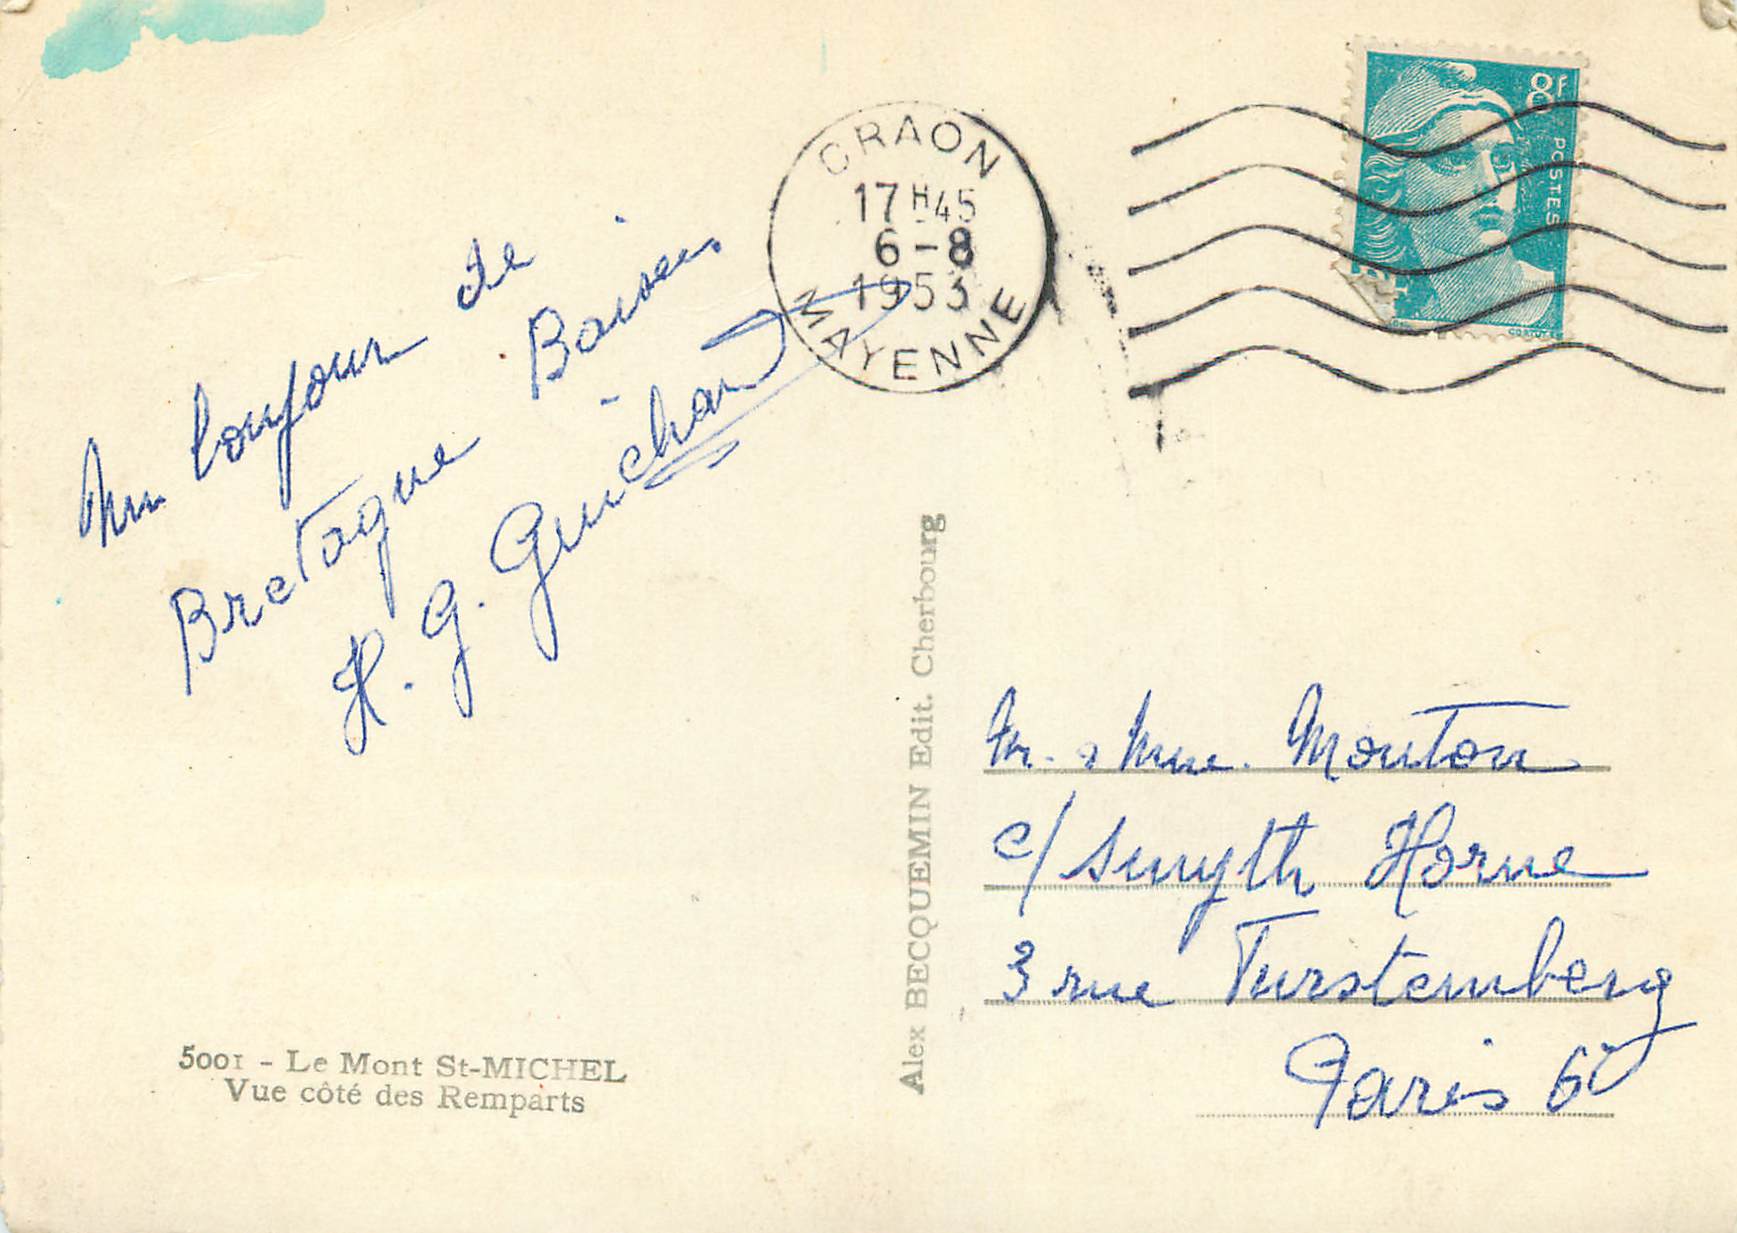 Un bonjour de
Bretagne Baisers
H. G. Guichard
CRAON
17H45
6-8
1953
MAYENNE
8F
POSTES
Alex BECQUEMIN Edit. Cherbourg
Mr. & Mme. Mouton
c/ Smyth Horne
3 rue Furstemberg
Paris 6è
5001 - Le Mont St-MICHEL
Vue côté des Remparts